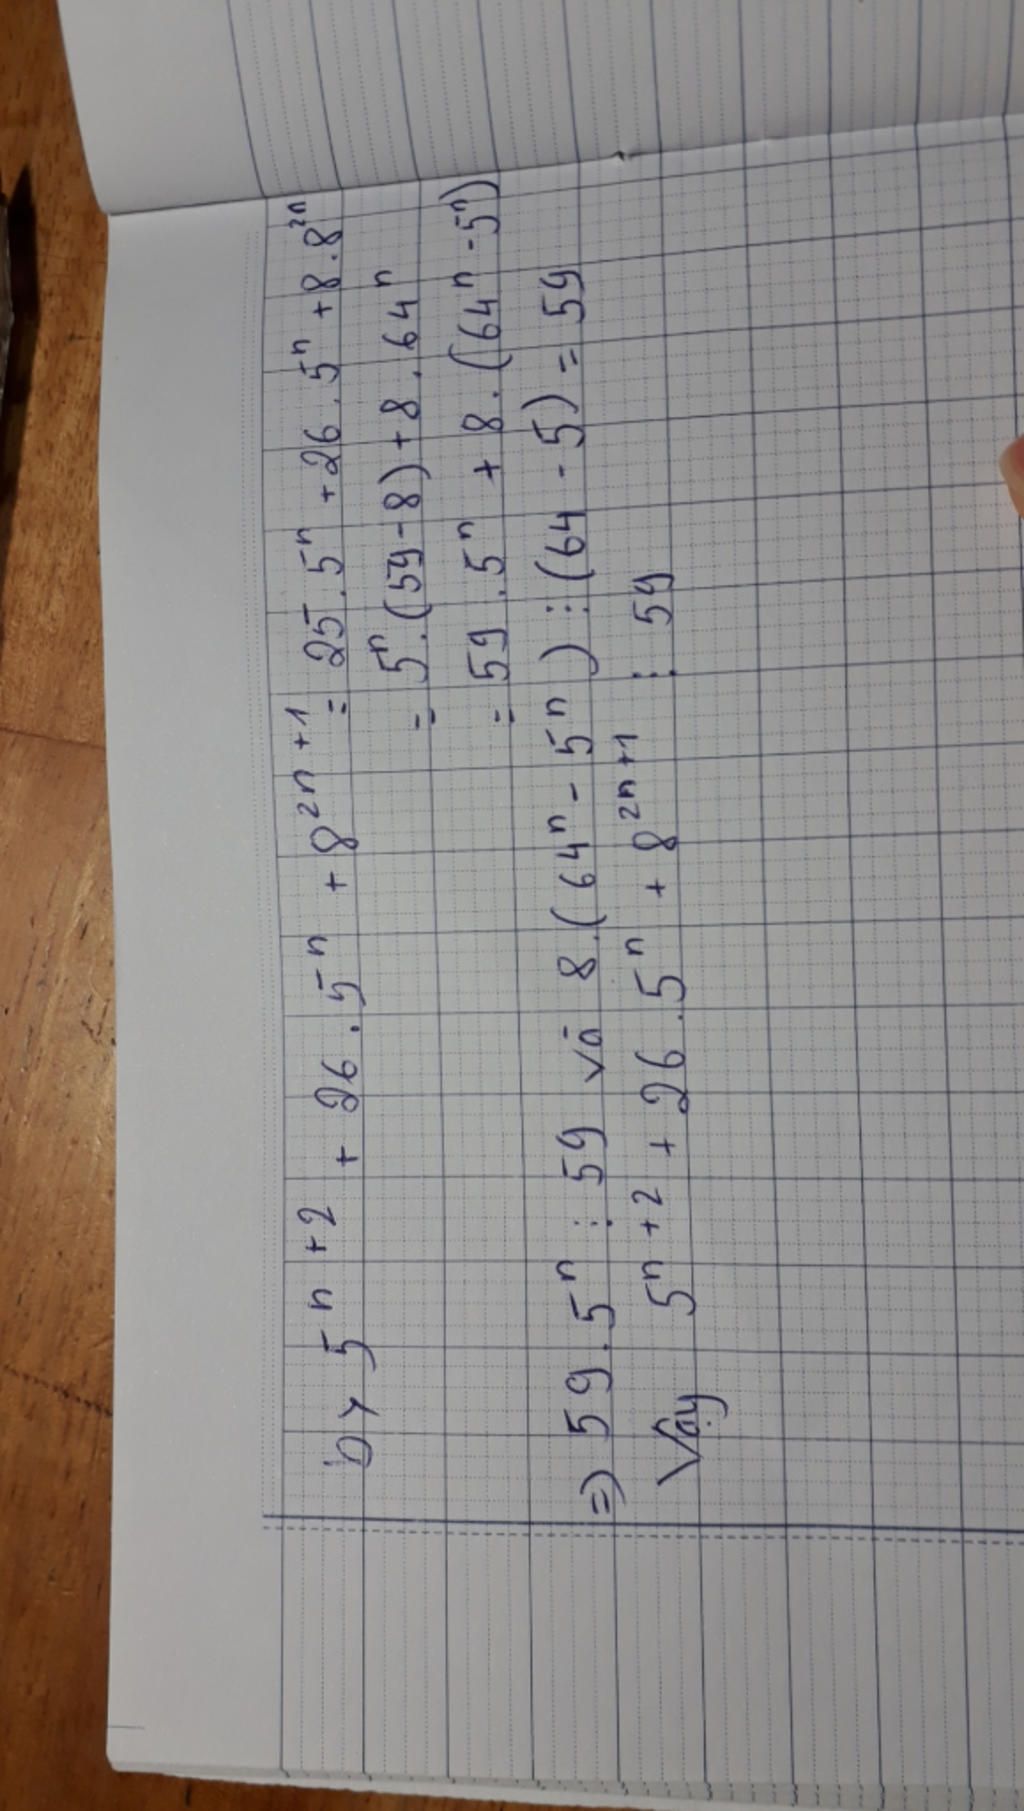 b, 5ⁿ⁺² + 26 . 5ⁿ + 8²ⁿ⁺¹ = 25 . 5ⁿ + 26 . 5ⁿ + 8 . 8²ⁿ
= 5ⁿ . (59 - 8) + 8 . 64ⁿ
= 59 . 5ⁿ + 8 . (64ⁿ - 5ⁿ)
=> 59 . 5ⁿ ⋮ 59 và 8 . (64ⁿ - 5ⁿ) ⋮ (64 - 5) = 59
Vậy 5ⁿ⁺² + 26 . 5ⁿ + 8²ⁿ⁺¹ ⋮ 59